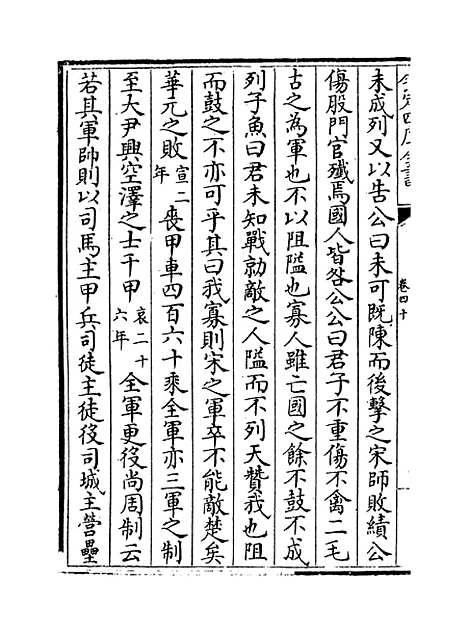 欽定四庫全書
卷四十
未成列又以告公曰未可既陳而後擊之宋師敗績公
傷股門官殲焉國人皆咎公公曰君子不重傷不禽二毛
古之為軍也不以阻隘也寡人雖亡國之餘不鼓不成
列子魚曰君未知戰勍敵之人隘而不列天贊我也阻
而鼓之不亦可乎其曰我寡則宋之軍卒不能敵楚矣
華元之敗宣二年喪甲車四百六十乘全軍亦三軍之制
至大尹興空澤之士千甲哀二十六年全軍更役尚周制云
若其軍帥則以司馬主甲兵司徒主徒役司城主營壘